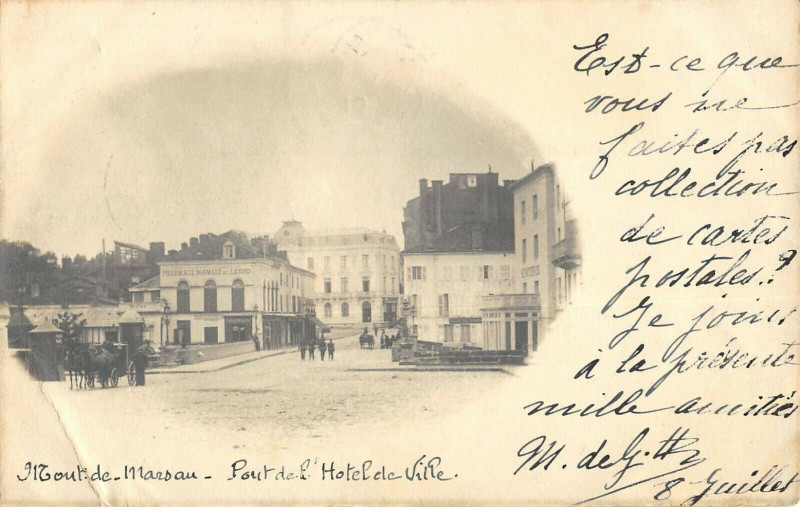 Est-ce que
vous ne
faites pas
collection
de cartes
postales.?
Je joins
à la présente
mille amitiés
M. de
8 Juillet
PHARMACIE NORMALE DES LANDES
Mont-de-Marsan - Pont de l'Hotel de Ville.